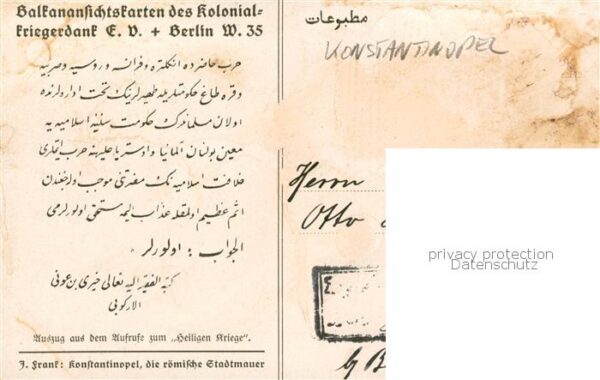 Balkanansichtskarten des Kolonial-
kriegerdank E. V. + Berlin W. 35
حرب حاضرده انكلتره وفرانسه و روسيه وصربيه
وقره طاغ حكومتلريله ظهيرلرينك تحت اداره‌لرنده
اولان مسلمانلرك حكومت سنيه اسلاميه يه
معين بولنان المانيا و اوستريا عليهنه حرب ايتملرى
خلافت اسلاميه نك مضرتنى موجب اوله‌جغندن
اثم عظيم اولمغله عذاب اليمه مستحق اولورلرمى
الجواب : اولورلر
كتبه الفقير اليه تعالى خيرى بن عونى
الاركوبى
Auszug aus dem Aufrufe zum „Heiligen Kriege“.
J. Frank: Konstantinopel, die römische Stadtmauer
مطبوعات
KONSTANTINOPEL
Herrn
Otto
privacy protection
Datenschutz